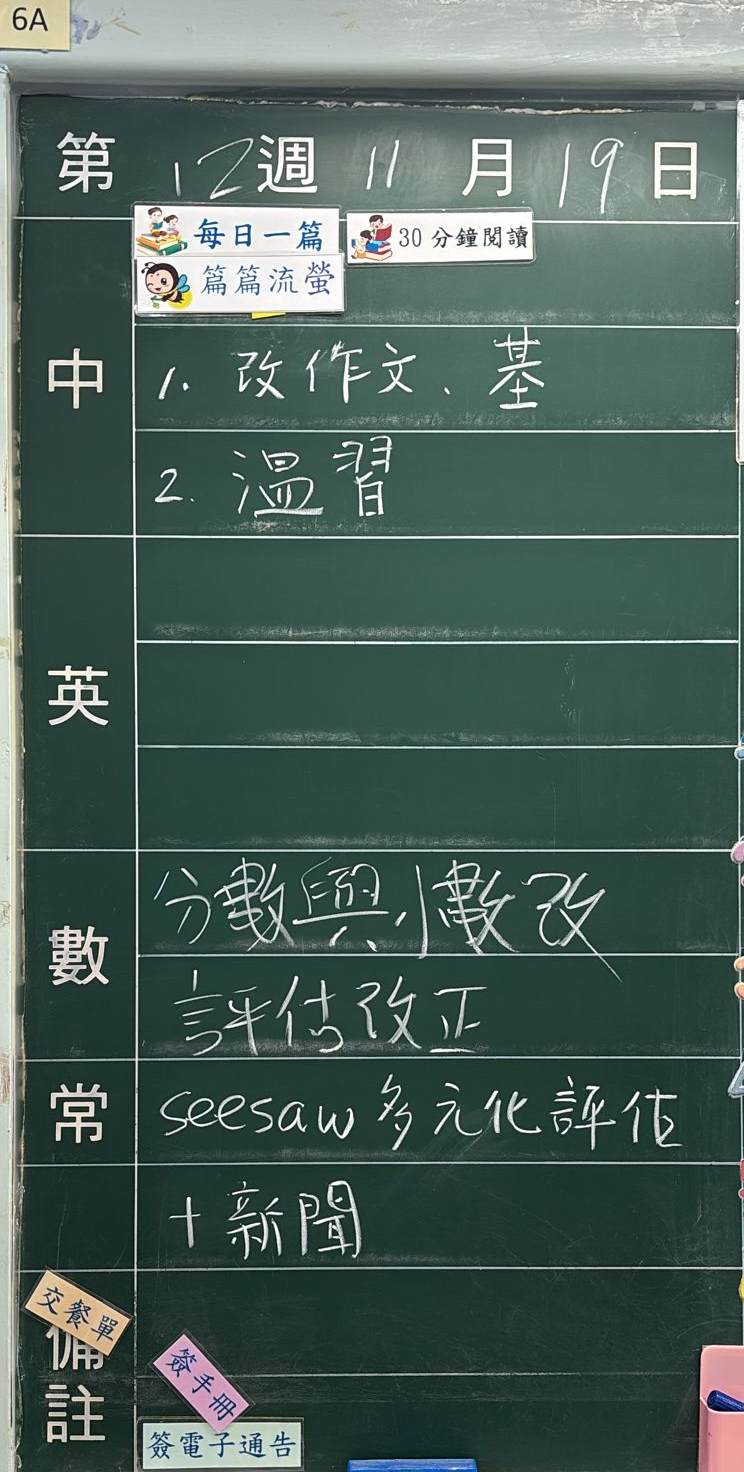 6A
第 12 週 11 月 19 日
每日一篇 30分鐘閱讀
篇篇流螢
中 1. 改作文、基
2. 溫習
英
數 分數與小數改
評估改正
常 seesaw 多元化評估
+ 新聞
交餐單
備註
簽手冊
簽電子通告